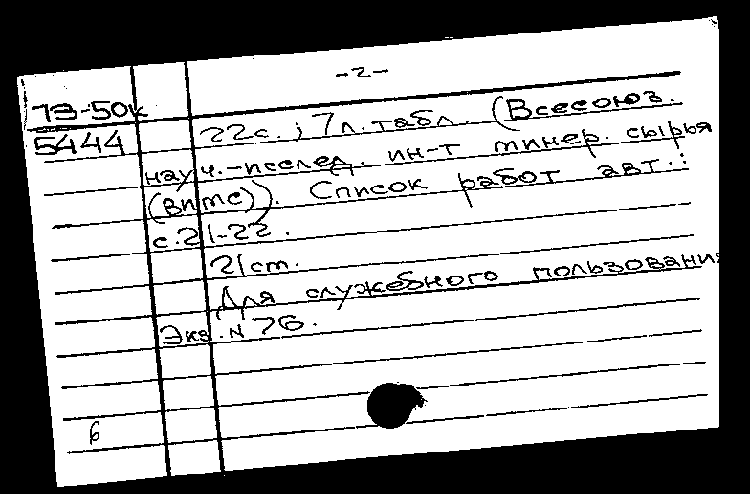 -2-
13-50к
5444
22с.; 7л. табл. (Всесоюз.
науч.-исслед. ин-т минер. сырья
(ВИМС)). Список работ авт.:
с.21-22.
21cm.
Для служебного пользования
Экз. № 76.
6